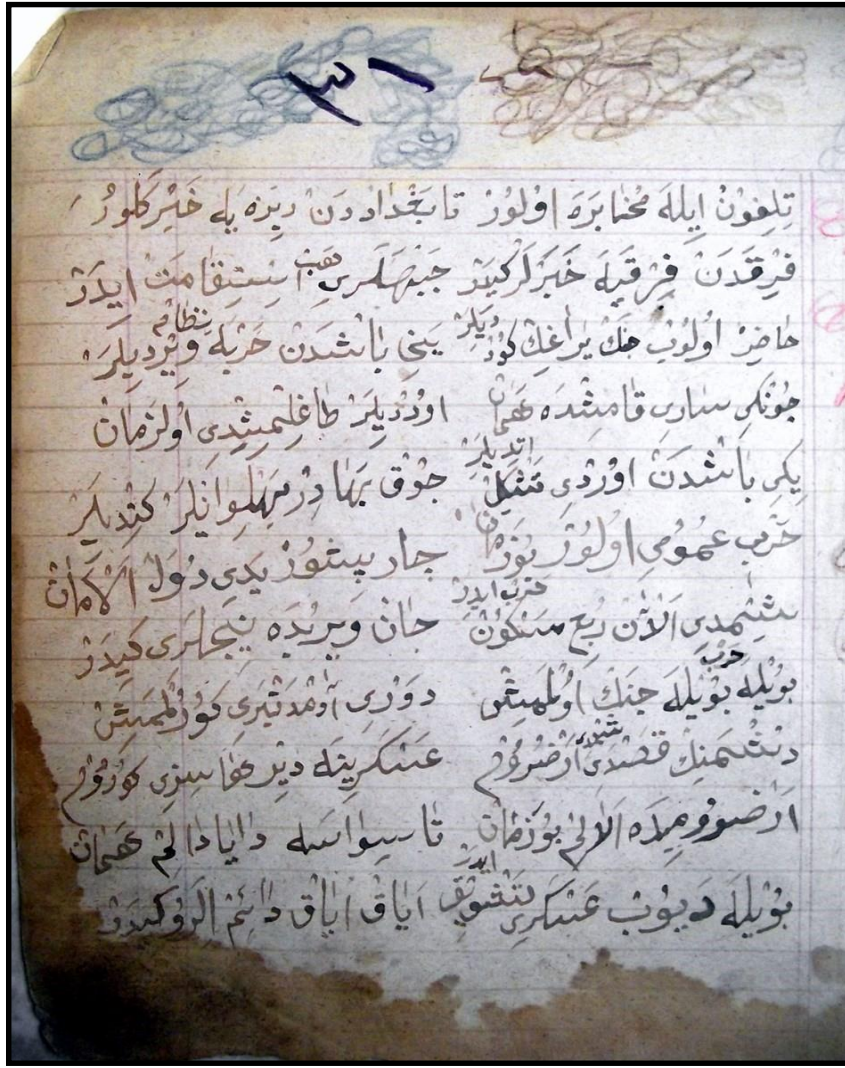 ٣١
تِلِفونْ اِيلَهَ مُخَابَرَهَ اوُلُورْ تا بَغْدَاددَنْ دِيَزهَ يِله خَبَرْ كَلورْ
فِرقَدَنْ فِرقَيَهَ خَبَرلَرْ كيدَرْ جَبْهَلَرى هَبْ اِستِقَامَتْ ايدَرْ
حاضِرْ اوُلُوبْ جنك يَراغِنْ كوُرْديلَرْ يَكى باشدَنْ حَربَهَ نِظامْ ويَرديِلَرْ
چونكى سارى قامشدَه همان اوردِيلَرْ طاغِلمِشْدى اولزمانْ
يكى باشدَنْ اوردى تشكيلْ اتديلَرْ چوقْ بهادِرْ پهلِوانلَرْ كتدِيلَرْ
حَربِ عُمومى اولُورْ بُوزَمانْ چارپشورْ يدى دُوَلْ اَلْاَمانْ
شِيمدى اَلْآنْ رُبعِ مَسْكُونْ حَربْ ايدر جانْ ويرِرْدَه نيجَهلَرى كيدَرْ
بُويْلَهَ بُويْلَهَ حَربْ جنك اولممِشْ دَورى آدَمدَنْبَرى كورُلممِشْ
دشمَنِكْ قَصْدى شيمدى اَرضروُم عَسكَرينَه ديرْ همّا سِزى كورُرم
اَرضرومِيدَه آلالِمْ بوُزمانْ تا سِيواسَه دايادالِمْ همانْ
بُويْلَهَ دَيوُبْ عَسْكَرى تَشْوِيقْ ايدَرْ اَياقْ اَياقْ دائِمْ اِلَروُ كيدَرْ